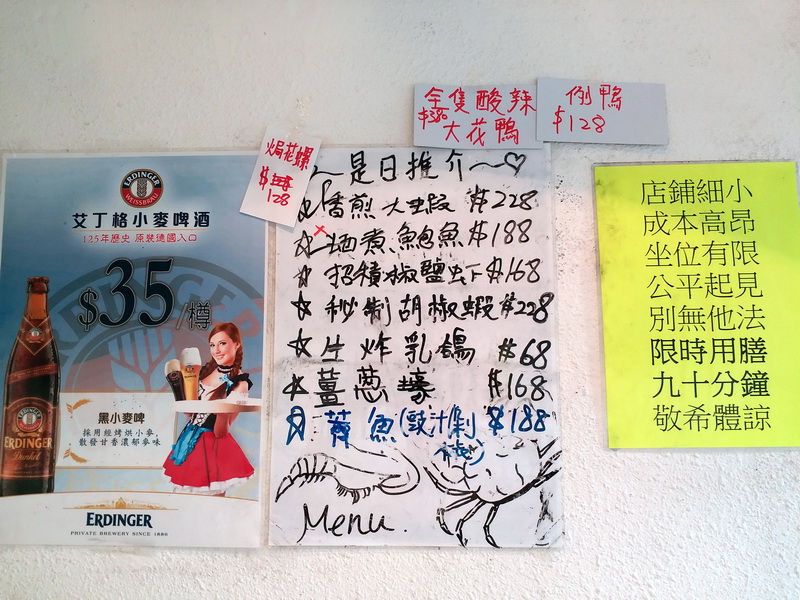 ERDINGER
WEISSBRÄU
艾丁格小麥啤酒
125年歷史 原裝德國入口
$35/樽
黑小麥啤
採用經烤烘小麥,
散發甘香濃郁麥味
ERDINGER
Dunkel
ERDINGER
PRIVATE BREWERY SINCE 1886
焗花螺
$
128
全隻酸辣
$380
大花鴨
例鴨
$128
~是日推介~♡
☆香煎大蝦 $228
☆酒煮鮑魚 $188
☆招積椒鹽虾 $168
☆秘制胡椒蝦 $228
☆生炸乳鴿 $68
☆薑葱壕 $168
☆ 魚(豉汁 $188
Menu.
店鋪細小
成本高昂
坐位有限
公平起見
別無他法
限時用膳
九十分鐘
敬希體諒